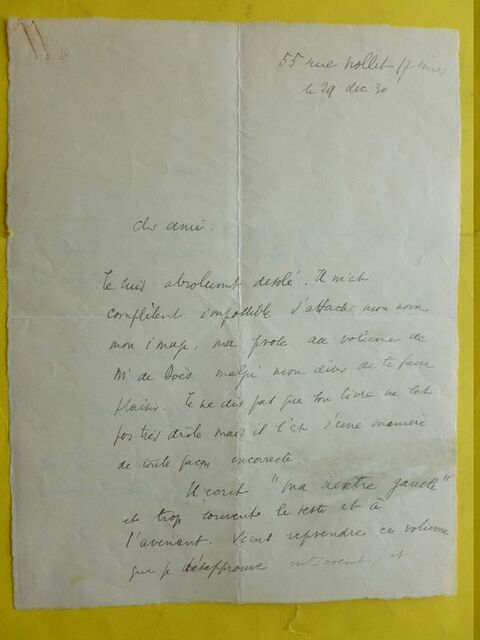 55 rue Nollet
le 29 dec 30
cher ami.
Je suis absolument desolé. Il m'est
complètent impossible d'attacher mon nom
mon image, ma prose au volume de
Mr de malgré mon désir de te faire
plaisir. Je ne dis pas que son livre ne soit
pas très drôle mais il l'est d'une manière
de toute façon incorrecte.
Il écrit "ma dextre gauche"
et trop souvent le reste est à
l'avenant. Viens reprendre ce volume
que je désapprouve entièrement et